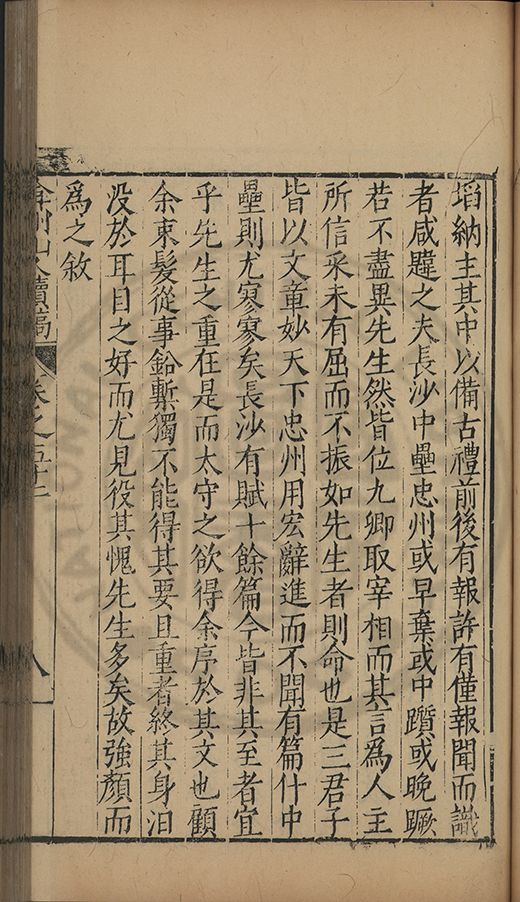 埳納主其中以備古禮前後有報許有僅報聞而識
者咸韙之夫長沙中壘忠州或早棄或中躓或晚蹶
若不盡異先生然皆位九卿取宰相而其言為人主
所信采未有屈而不振如先生者則命也是三君子
皆以文章妙天下忠州用宏辭進而不聞有篇什中
壘則尤寥寥矣長沙有賦十餘篇今皆非其至者宜
乎先生之重在是而太守之欲得余序於其文也顧
余束髮從事鉛槧獨不能得其要且重者終其身汩
没於耳目之好而尤見役其愧先生多矣故強顏而
為之敘
弇州山人續稿 卷之五十二 八